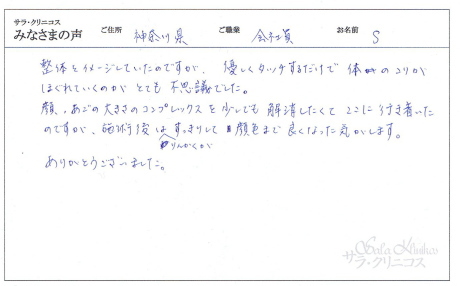 サラ・クリニコス
みなさまの声 ご住所 神奈川県 ご職業 会社員 お名前 S
整体をイメージしていたのですが、優しくタッチするだけで体のコリが
ほぐれていくのがとても不思議でした。
顔、あごの大きさのコンプレックスを少しでも解消したくてここに行き着いた
のですが、施術後はすっきりして顔色まで良くなった気がします。
りんかくが
ありがとうございました。
Sala Klinikos
サラ・クリニコス